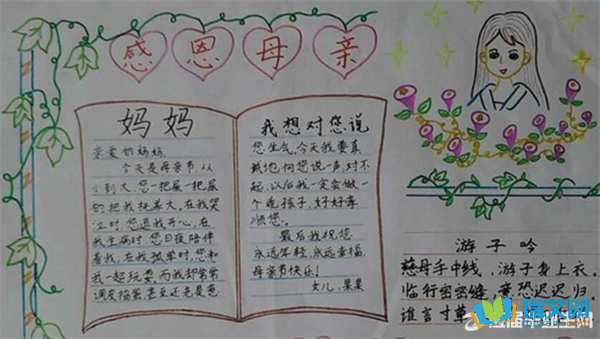 感恩母亲
妈妈
亲爱的妈妈,
今天是母亲节,从
小到大,您一把屎一把尿
的把我抚养大,在我哭
泣时,您逗我开心,在
我生病时,您日夜陪伴
着我,在我孤单时,您和
我一起玩耍,而我却常常
调皮捣蛋,甚至还老是惹
我想对您说
您生气,今天我要真
诚地向您说一声,对不
起,以后我一定会做一
个乖孩子,好好孝
顺您。
最后我祝您
永远年轻,永远幸福,
母亲节快乐!
女儿:果果
游子吟
慈母手中线,游子身上衣。
临行密密缝,意恐迟迟归
谁言寸草
瑞文网